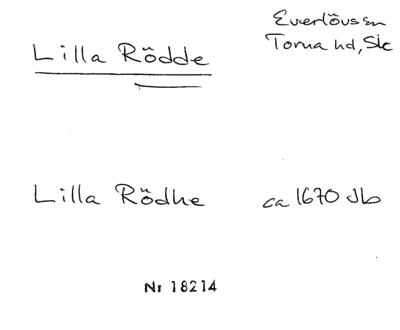 Everlövs sn
Lilla Rödde
Torna hd, Sk
Lilla Rödhe ca 1670 Jb
Nr 18214